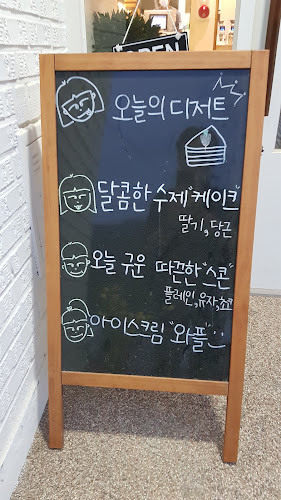 OPEN
오늘의 디저트
달콤한 수제 "케이크"
딸기, 당근
오늘 구운 따끈한 "스콘"
플레인, 유자, 초코
아이스크림 "와플"